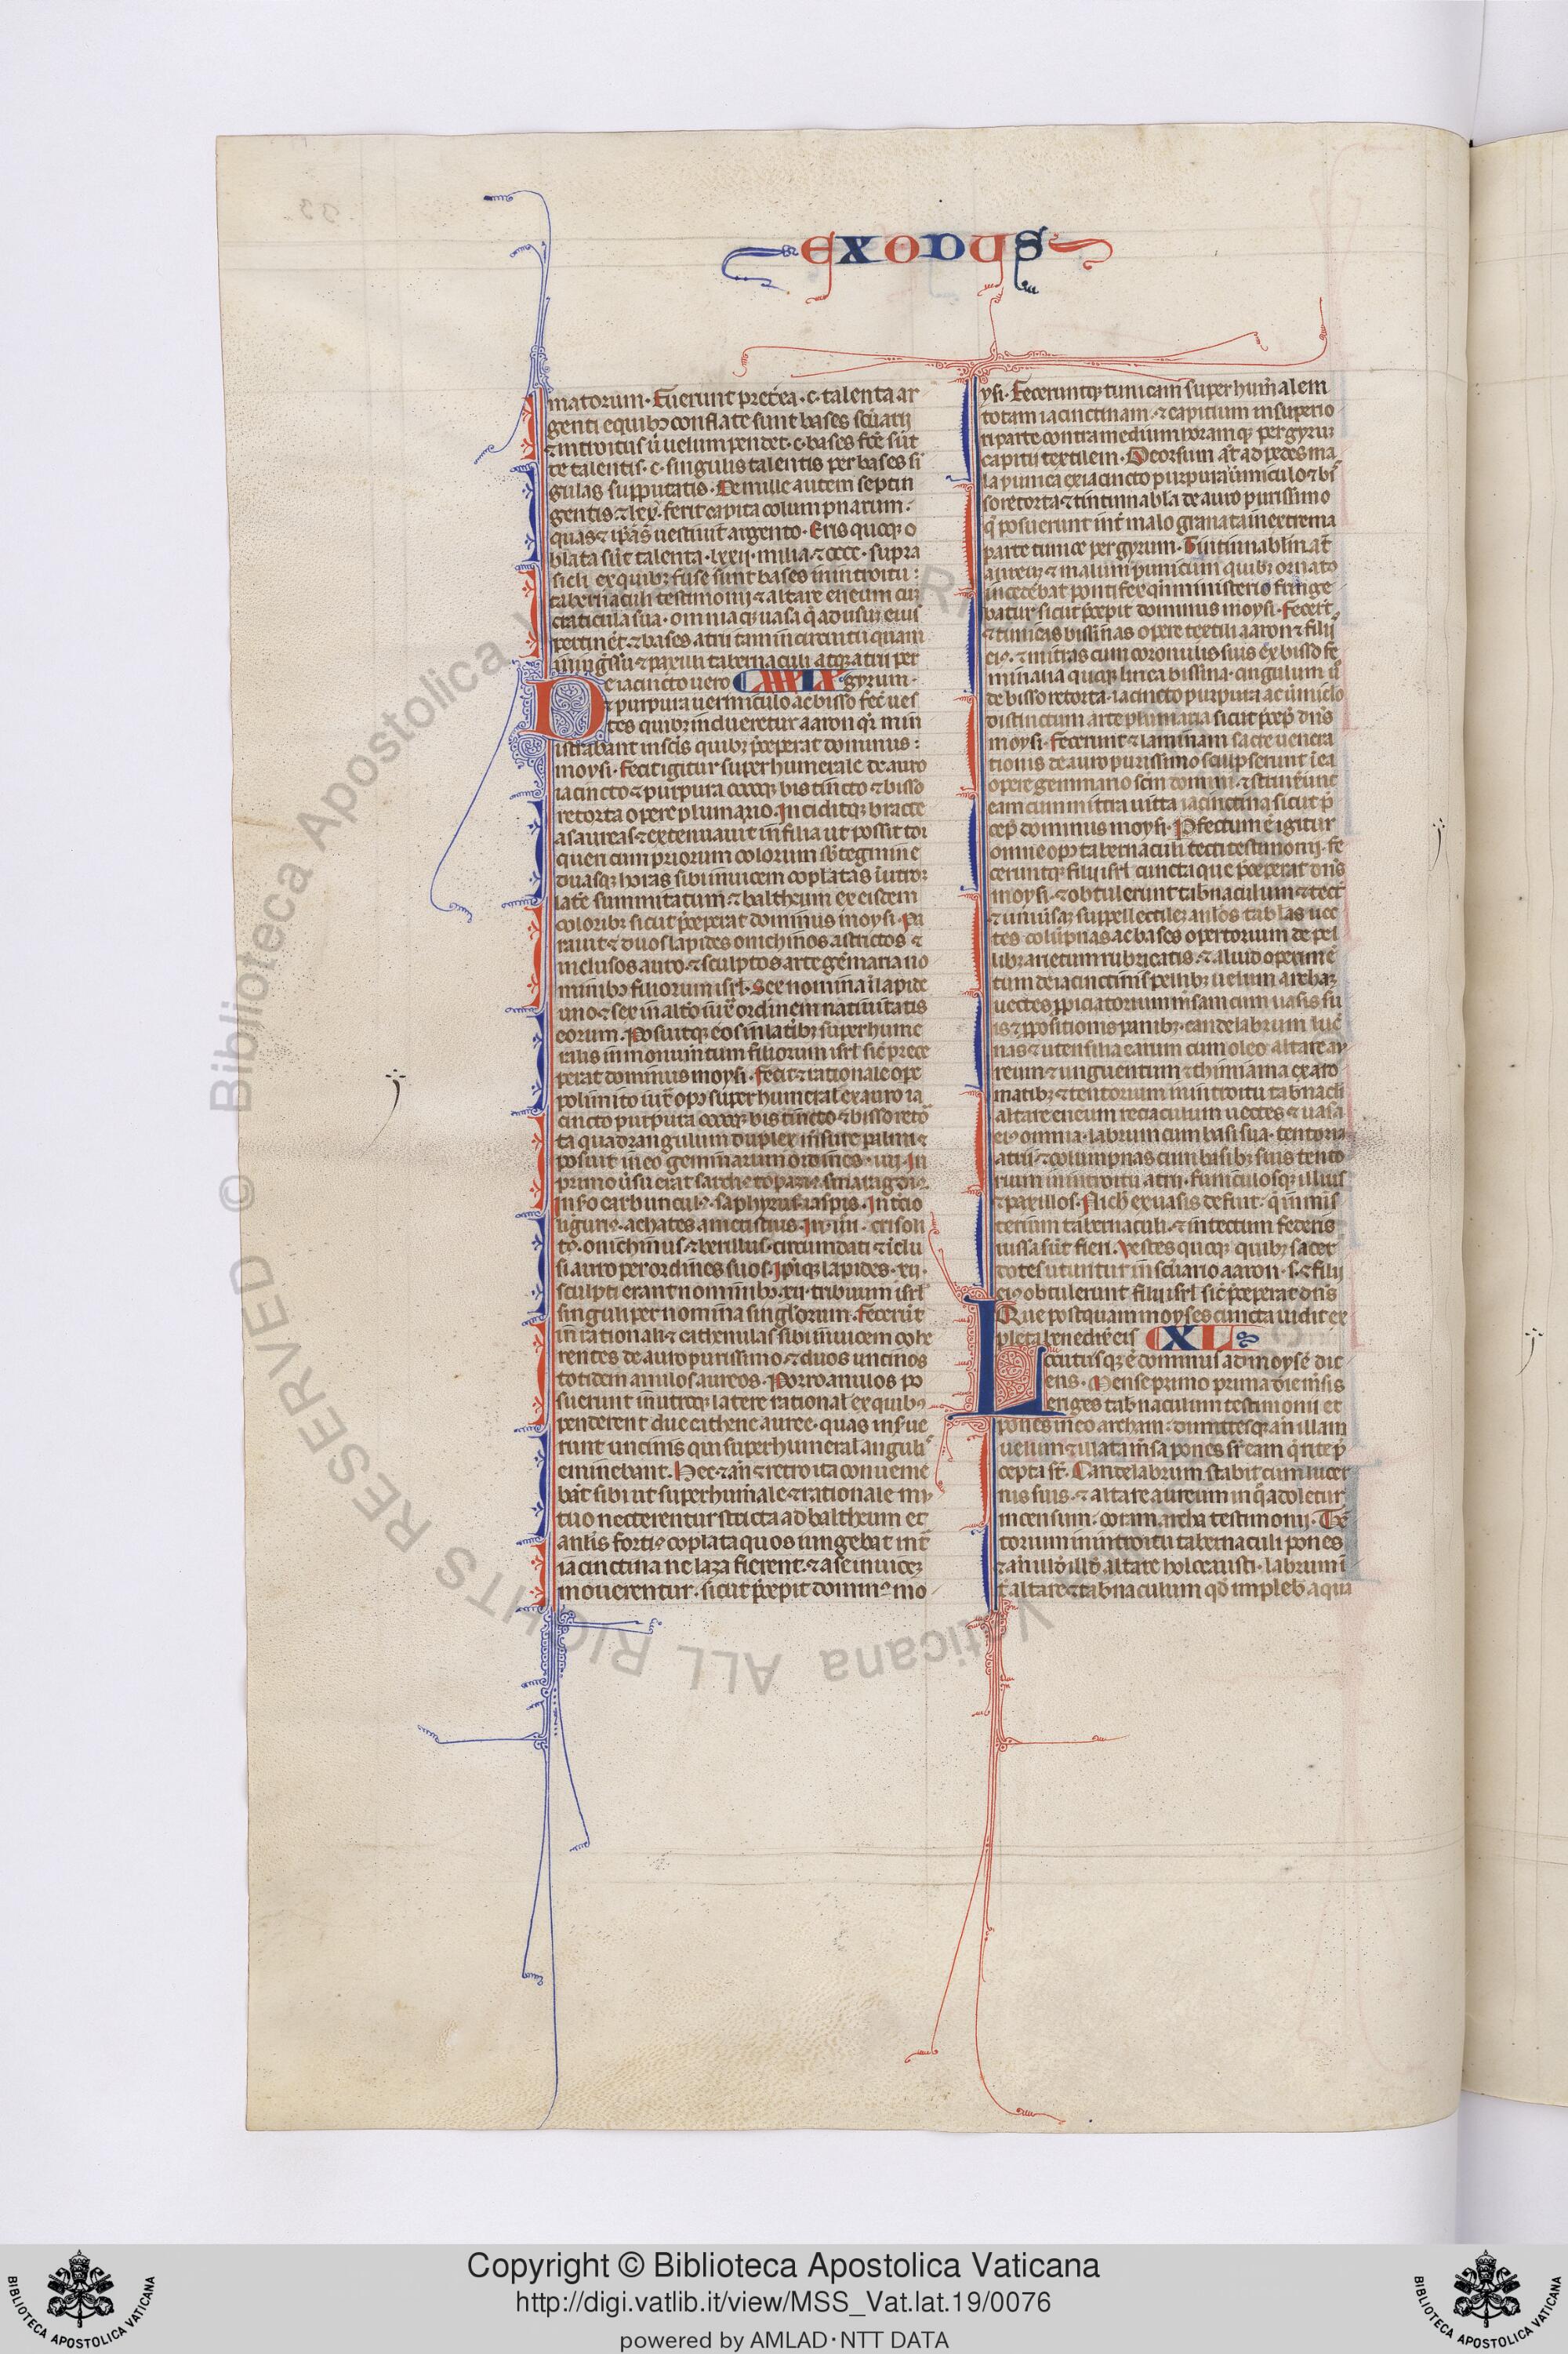 EXODUS
matorum. Fuerunt pret̾ea .c. talenta ar
genti e quibꝫ conflate sunt bases sc̃uarii
⁊ introitus ubi uelum pendet .c. bases fc̃e sũt
de talentis .c. singulis talentis per bases sĩ
gulas supputatis. De mille autem septin
gentis ⁊ lxxv. fecit capita columpnarum.
quas ⁊ ip̃as uestiuit argento. Eris quoqꝫ o
blata sũt talenta .lxxii. milia ⁊ cccc. supra
sicli ex quibꝫ fuse sunt bases in introitu
tabernaculi testimonii ⁊ altare eneum cũ
craticula sua. omniaqꝫ uasa q̃ ad usum eius
pertinẽt. ⁊ bases atrii tam in circuitu quam
in ingr̃su ⁊ paxilli tabernaculi atqꝫ atrii per
De iacincto uero gyrum.
⁊ purpura uermiculo ac bisso fec̾ ues
tes quibꝫ indueretur aaron qñ min
istrabant in sc̃is quibꝫ p̃ceperat dominus
moysi. Fecit igitur superhumerale de auro
iacincto ⁊ purpura coccoqꝫ bis tincto ⁊ bisso
retorta opere plumario. Inciditqꝫ bracte
as aureas ⁊ extenuauit in fila ut possit tor
queri cum priorum colorum sb̾tegmine
duasqꝫ horas sibi inuicem coplatas ĩ utroqꝫ
lat̾e summitatum. ⁊ baltheum ex eisdem
coloribꝫ sicut p̃ceperat dominus moysi. Pa
rauit ⁊ duos lapides onichinos astrictos ⁊
inclusos auro. ⁊ sculptos arte gẽmaria no
minibꝫ filiorum isrl̃. Sex nomina ĩ lapide
uno ⁊ sex in alt̾o iux̃ ordinem natiuitatis
eorum. Posuitqꝫ eos in lat̾ibꝫ superhume
ralis in monumtum filiorum isrl̃ sic̃ prece
perat dominus moysi. Fecit ⁊ rationale ope̾
polimito iux̃ opꝰ superhumeral̾ ex auro ia
cincto purpura coccoqꝫ bis tincto ⁊ bisso reto̾
ta quadrangulum duplex mensure palmi ⁊
posuit in eo gemmarum ordines .iiii. In
primo ũsu erat sardiꝰ topaziꝰ smaragdiꝰ
in .ii.o carbunculꝰ. saphyrus ⁊ iaspis. In t̾cio
ligurius. achates ametistus. In .iiii. crisoli
tꝰ. onichinus ⁊ berillus. circumdati ⁊ ĩclu
si auro per ordines suos. Ip̃iqꝫ lapides .xii.
sculpti erant nominibꝫ .xii. tribuum isrl̃
singuli per nomina singl̾orum. Fecerũt
in rationali ⁊ cathenulas sibi inuicem cohe
rentes de auro purissimo. ⁊ duos uncinos
totidem anulos aureos. Porro anulos po
suerunt in utroqꝫ latere rational̾ ex quibꝫ
penderent due cathene auree. quas ins̾ue
runt uncinis qui superhumeral̾ angulis
eminebant. Hec ⁊ añ ⁊ retro ita conuenie
bãt sibi ut superhum̃ale ⁊ rationale mu
tuo necterentur stricta ad baltheum et
anlis fortiꝰ coplata quos iungebat uit̾
iacinctina ne laxa fierent. ⁊ a se inuicem
mouerentur. sicut p̃cepit dominꝰ mo
ysi. Feceruntqꝫ tunicam superhum̃alem
totam iacinctinam. ⁊ capitium in superio
ri parte contra medium horamqꝫ per gyrum
capitii textilem. Deorsum at̃ ad pedes ma
la punica ex iacincto purpura ũmiculo ⁊ bis
so retorta. ⁊ tintinnabl̾a de auro purissimo
q̃ posuerunt int̾ malogranata in extrema
parte tunice per gyrum. Tintinnabl̾m at̃
aureum ⁊ malum punicum quibꝫ ornatꝰ
incedebat pontifex qñ ministerio funge
batur sicut p̃cepit dominus moysi. Fecer̃t
⁊ tunicas bissinas opere textili aaron ⁊ filiis
eiꝰ. ⁊ mitras cum coronulis suis ex bisso fe
minalia quoqꝫ linea bissina. cingulum ũ
de bisso retorta. iacincto purpura ac ũmiclo
distinctum arte plumaria sicut p̃cep̃ dñs
moysi. Fecerunt ⁊ laminam sacre uenera
tionis de auro purissimo scripseruntqꝫ ĩ ea
opere gemmario sc̃m domini. ⁊ strinx̃unt
eam cum mitra uitta iacinctina sicut p̃
cep̃ dominus moysi. Pfectum ẽ igitur
omne opꝰ tabernaculi tecti testimonii. Fe
ceruntqꝫ filii isrl̃ cuncta que p̃ceperat dñs
moysi. ⁊ obtulerunt tabnaculum ⁊ tectũ
⁊ uniũsam suppellectilem anlõs tablas uec
tes colũpnas ac bases opertorium de pel
libꝫ arietum rubricatis. ⁊ aliud operimẽ
tum de iacinctinis pellibꝫ uelum archam
uectes ppiciatorium mẽsam cum uasis su
is ⁊ ppositionis panibꝫ. candelabrum luc̾
nas ⁊ utensilia earum cum oleo. altare au
reum ⁊ unguentum ⁊ thimiama ex aro
matibꝫ ⁊ tentorium in introitu tabnacli
altare eneum retiaculum uectes ⁊ uasa
eiꝰ omnia. labrum cum basi sua. tentoria
atrii. ⁊ columpnas cum basibꝫ suis tento
rium in introitu atrii. funiculosqꝫ illius
⁊ paxillos. Nich̾ ex uasis defuit. q̃ in minis
terium tabernaculi. ⁊ in tectum federis
iussa sũt fieri. Vestes quoqꝫ quibꝫ sacer
dotes utuntur in sc̃uario aaron .s. ⁊ filii
eiꝰ obtulerunt filii isrl̃ sic̃ p̃ceperat dñs
Que postquam moyses cuncta uidit ex
pleta benedix̃ eis XL
Locutusqꝫ ẽ dominus ad moysẽ dic
ens. Mense primo prima die mẽsis
eriges tabnaculum testimonii et
pones in eo archam. dimittesqꝫ añ illam
uelum ⁊ illata mẽsa pones sr̃ eam q̃ rite p̃
cepta sũt. Candelabrum stabit cum lucer
nis suis. ⁊ altare aureum in q̃ adoletur
incensum. coram archa testimonii. Tẽ
torium in introitu tabernaculi pones
⁊ añ illud altare holocausti. labrum ĩ
t̾ altare ⁊ tabnaculum qd̾ impleb̾ aqua
Copyright © Biblioteca Apostolica Vaticana
http://digi.vatlib.it/view/MSS_Vat.lat.19/0076
powered by AMLAD·NTT DATA
BIBLIOTECA APOSTOLICA VATICANA
BIBLIOTECA APOSTOLICA VATICANA
© Biblioteca Apostolica Vaticana ALL RIGHTS RESERVED